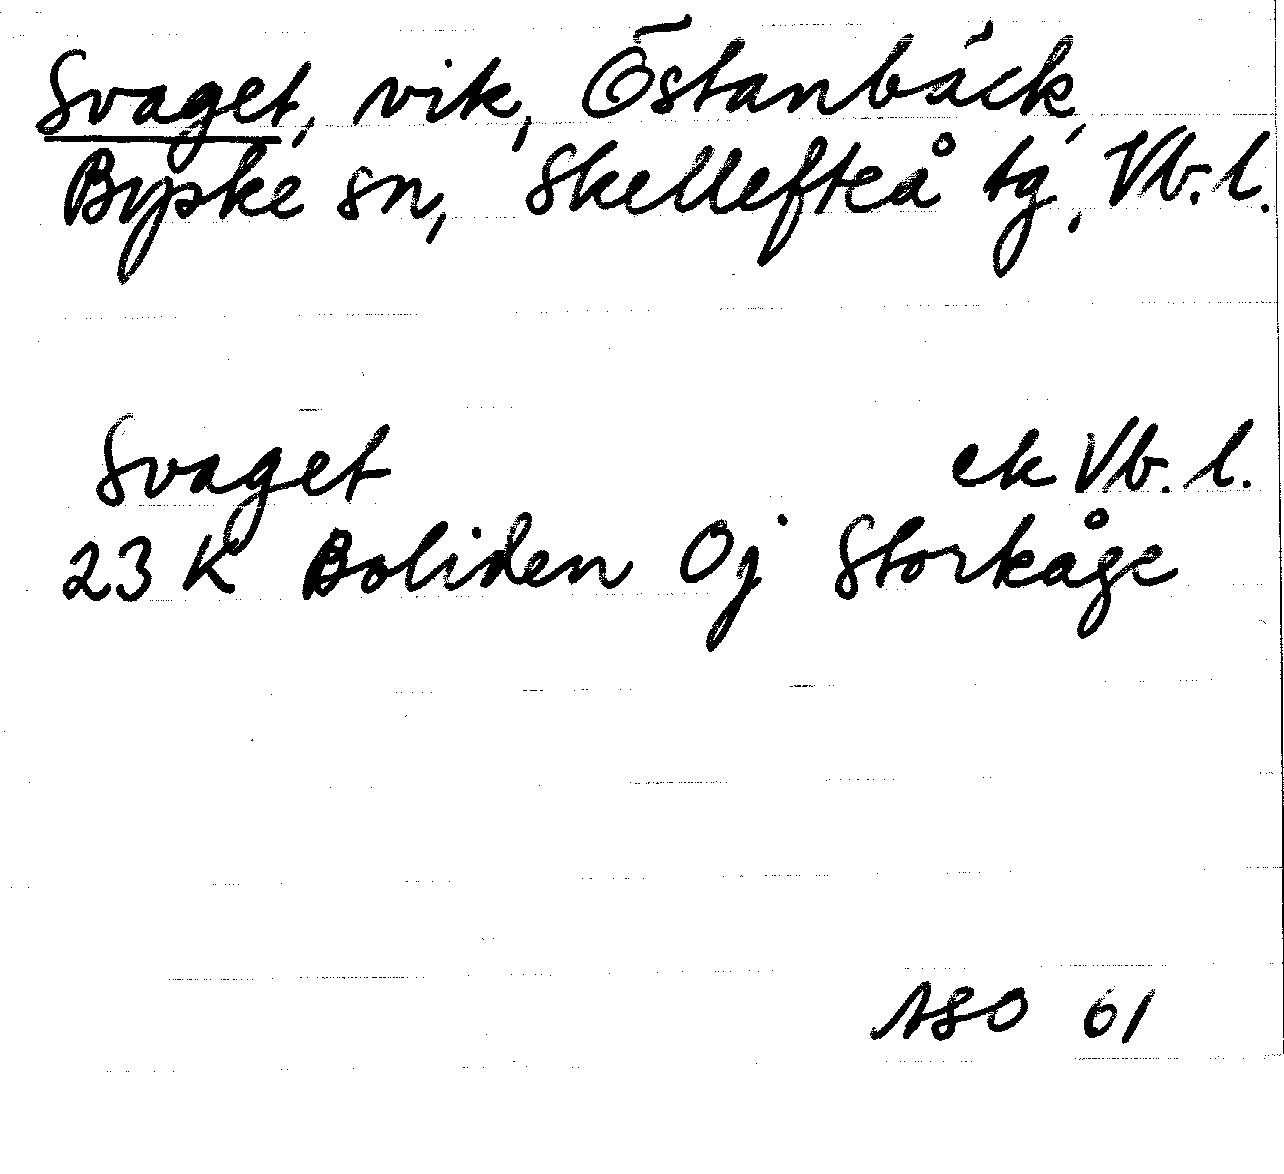 Svaget, vik, Östanbäck,
Byske sn, Skellefteå tg, Vb. l.
Svaget ek Vb. l.
23 K Boliden 0j Storkåge
ASO 61